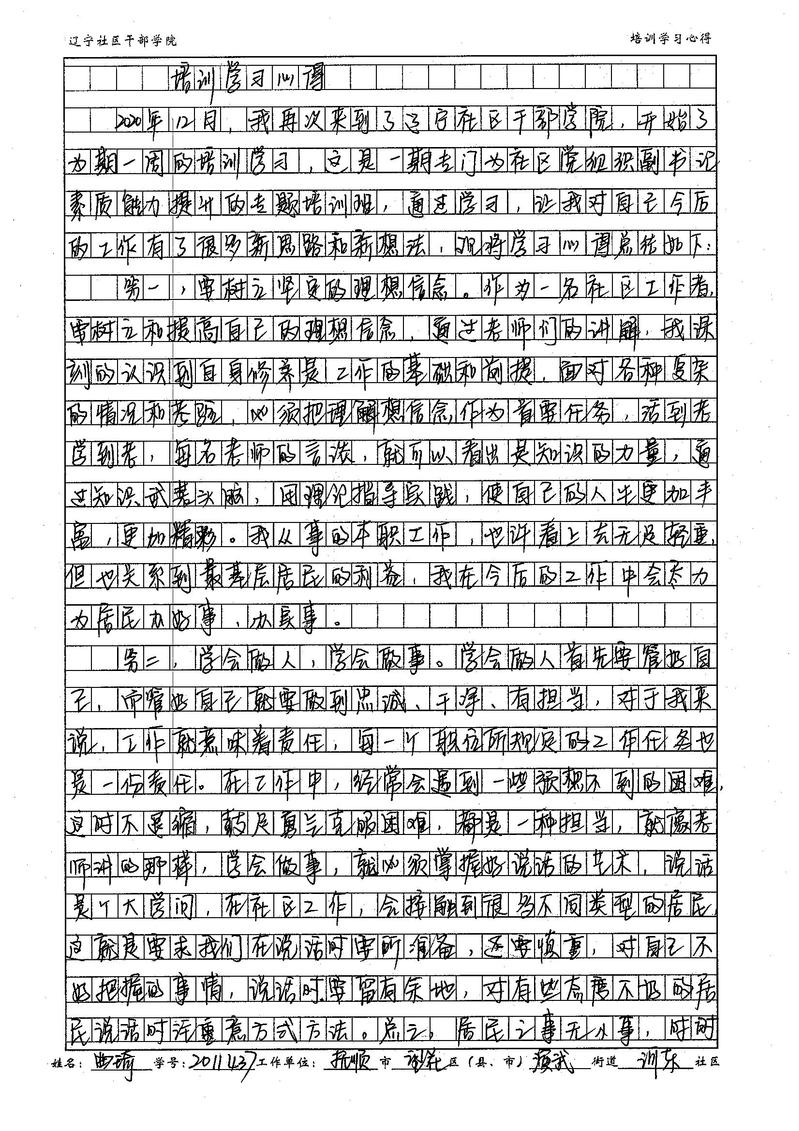 辽宁社区干部学院 培训学习心得
培训学习心得
2020年12月，我再次来到了辽宁社区干部学院，开始了
为期一周的培训学习，这是一期专门为社区党组织副书记
素质能力提升的专题培训班，通过学习，让我对自己今后
的工作有了很多新思路和新想法，现将学习心得总结如下：
第一，要树立坚定的理想信念。作为一名社区工作者，
要树立和提高自己的理想信念，通过老师们的讲解，我深
刻的认识到自身修养是工作的基础和前提，面对各种复杂
的情况和考验，必须把理解想信念作为首要任务，活到老
学到老，每名老师的言谈，就可以看出是知识的力量，通
过知识武装头脑，用理论指导实践，使自己的人生更加丰
富，更加精彩。我从事的本职工作，也许看上去无足轻重，
但也关系到最基层居民的利益，我在今后的工作中会尽力
为居民办好事，办实事。
第二，学会做人，学会做事。学会做人首先要管好自
己，而管好自己就要做到忠诚、干净、有担当，对于我来
说，工作就意味着责任，每一个职位所规定的工作任务也
是一份责任。在工作中，经常会遇到一些预想不到的困难，
这时不退缩，鼓足勇气克服困难，都是一种担当，就像老
师讲的那样，学会做事，就必须掌握好说话的艺术，说话
是个大学问，在社区工作，会接触到很多不同类型的居民，
这就是要求我们在说话时要所准备，还要慎重，对自己不
好把握的事情，说话时要留有余地，对有些态度不好的居
民说话时注重意方式方法。总之，居民之事无小事，时时
姓名： 曲琦 学号：2011437 工作单位： 抚顺 市 区（县、市） 街道 社区